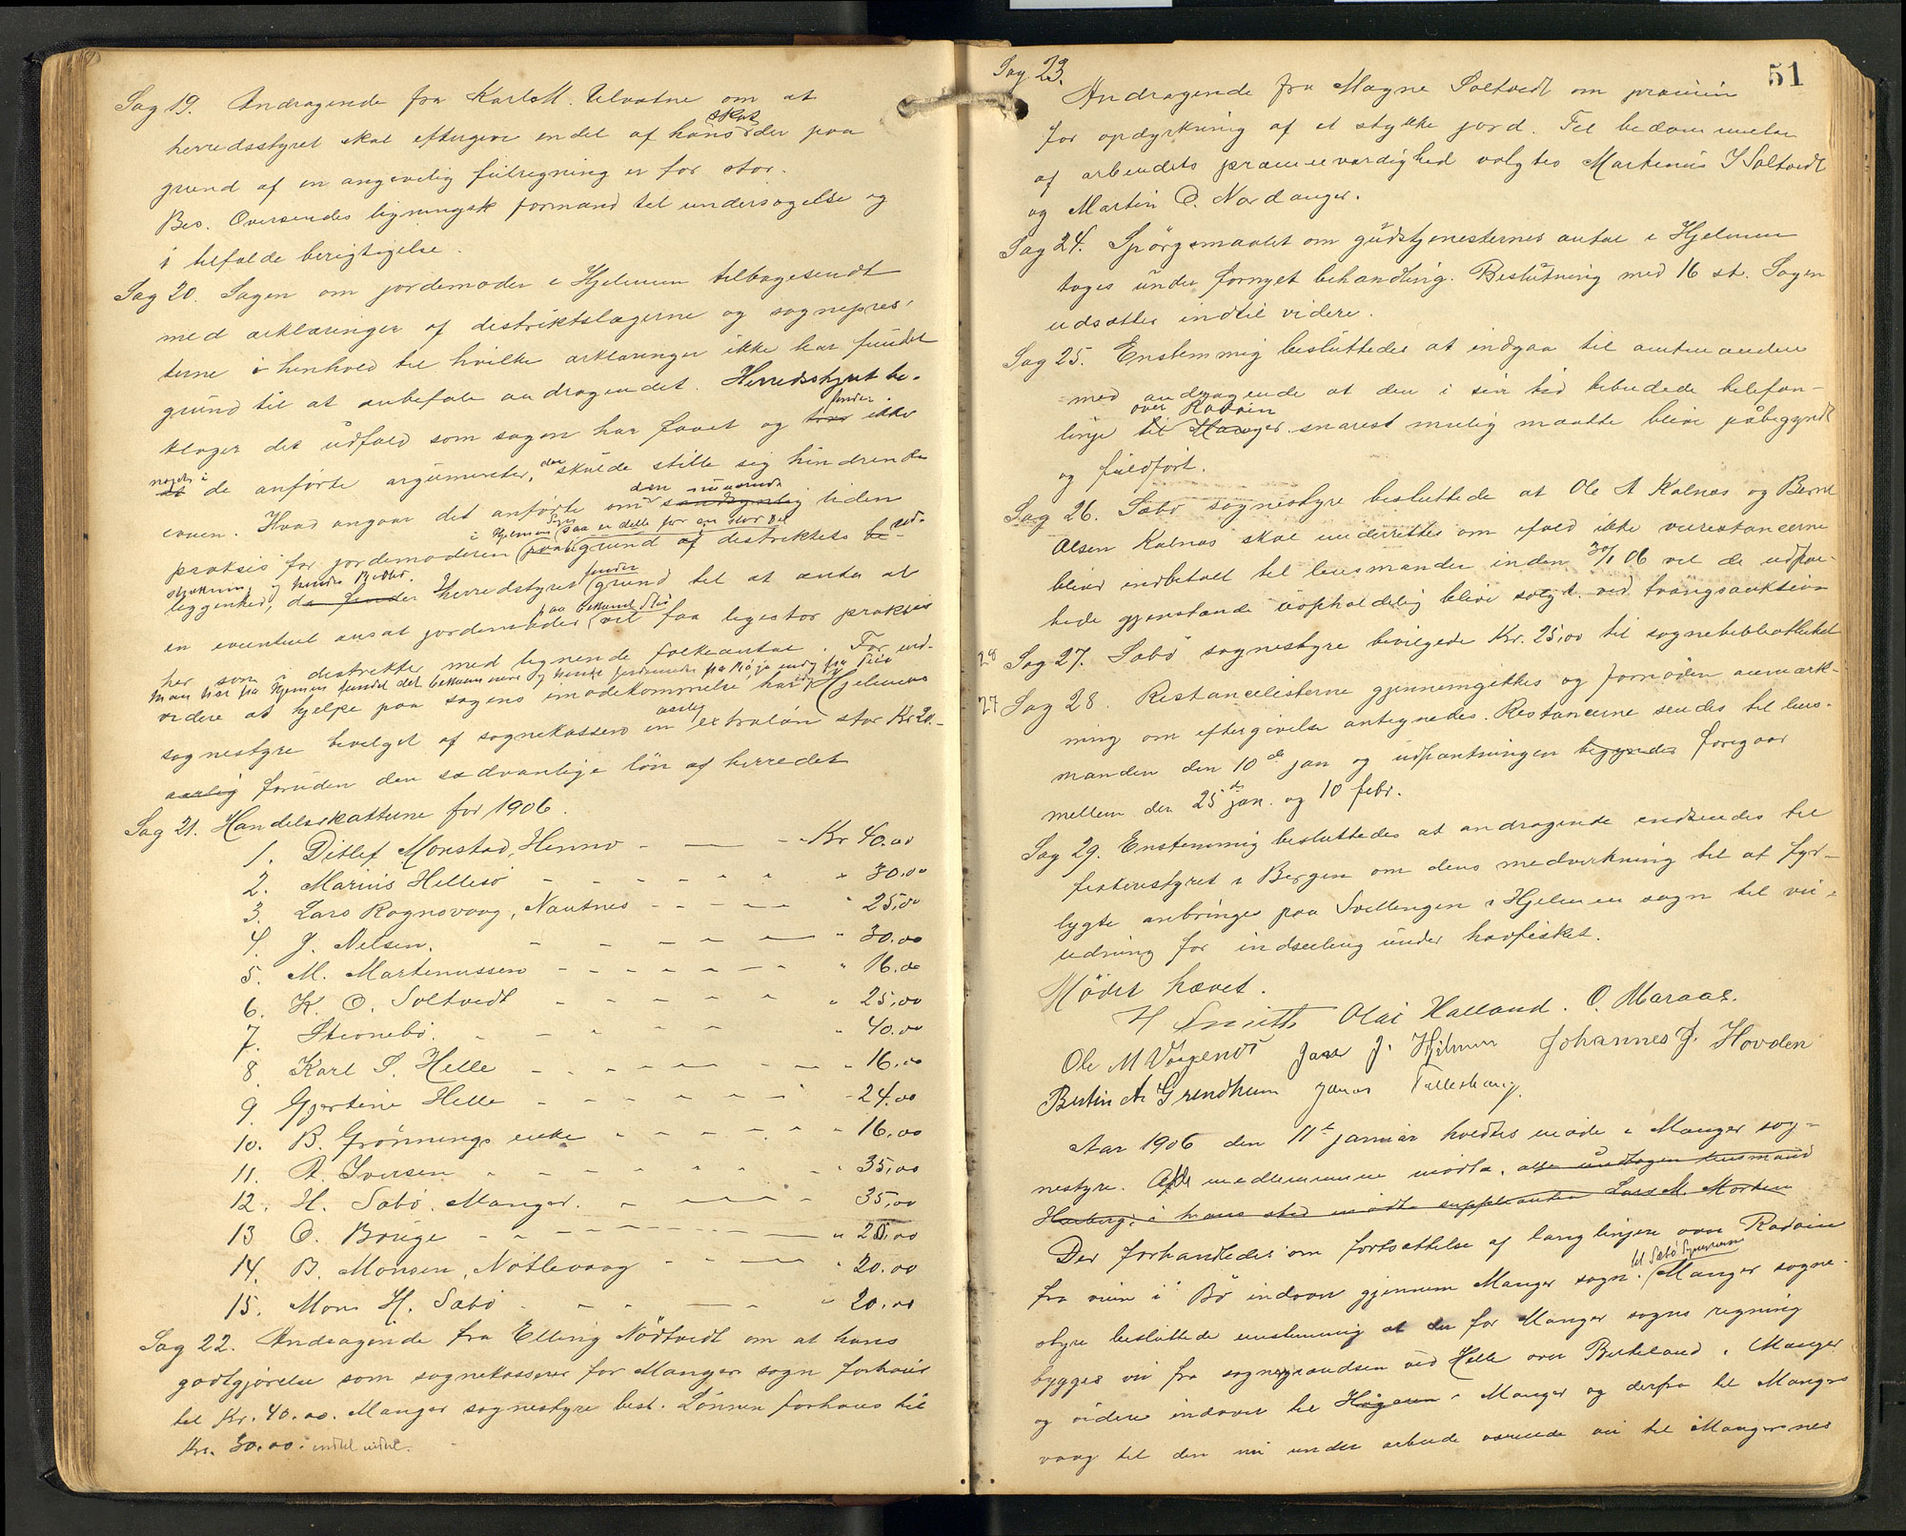 Sag 19. Andragende fra Karl M. Ulvatne om at
herredsstyret skal eftergive endel af hans skat der paa
grund af en angivelig feilregning er for stor.
Bes. Oversendes ligningsk formand til undersøgelse og
i tilfælde berigtigelse.
Sag 20. Sagen om jordemoder i Hjelmen tilbagesendt
med erklæringer af distriktslægerne og sognepres-
terne i henhold til hvilke erklæringer ikke har fundet
grund til at anbefale andragendet. Herredsstyret be-
klager det udfald som sagen har faaet og finder ikke
noget i de anførte argumenter, der skulde stille sig hindrende
Hvad angaar det anførte om den nuværende liden
i Hjelmen Sogn saa er dette for en stor Del
praksis for jordemoderen grund af distriktets ud-
strækning og hendes Bosted.
liggenhed, Herredstyret finder grund til at anta at
en eventuel ansat jordemoder paa bekvemt Sted vil faa ligestor praksis
her som distrikter med lignende folkeantal. For end-
videre at hjelpe paa sagens imødekommelse har Hjelmens
sognestyre bevilget af sognekassen en aarlig extraløn stor Kr 20.-
aarlig foruden den sædvanlige løn af herredet
Sag 21. Handelsskatterne for 1906.
1. Ditlef Monstad, Herno - - - Kr 40.00
2. Marius Hellesø - - - " 30.00
3. Lars Rognevaag, Nautnes - - - " 25,00
4. J. Nelsen. - - - " 30.00
5. M. Martenussen - - - " 16.00
6. K. O. Soltvedt - - - " 25,00
7. Steinebö. - - - " 40.00
8. Karl S. Helle - - - " 16,00
9. Gjertine Helle - - - 24.00
10. B. Grönnings enke - - - " 16,00
11. A. Iversen - - - " 35,00
12. H. Sæbö. Manger. - - - 35,00
13 O. Bouge - - - " 20,00
14. B. Monsen, Nötlevaag - - - " 20.00
15. Mons H. Sæbö - - - " 20,00
Sag 22. Andragende fra Elling Nödtvedt om at hans
godtgjörelse som sognekasserer for Manger sogn forhöies
til Kr. 40.00. Manger sognestyre besl. Lönnen forhöies til
Kr. 30.00. indtil videre.
51
Sag. 23.
Andragende fra Magne Soltvedt om præmie
for opdyrkning af et stykke jord. Til bedømmelse
af arbeidets præmieværdighed valgtes Martinus I Soltvedt
og Martin O. Nordanger.
Sag 24. Spörgsmaalet om gudstjenesternes antal i Hjelmen
toges under fornyet behandling. Beslutning med 16 st. Sagen
udsættes indtil videre.
Sag 25. Enstemmig besluttedes at indgaa til amtmanden
med andragende at den i sin tid bebudede telefon-
over Radöen
linje til Manger snarest mulig maatte blive påbegyndt
og fuldfört.
Sag 26. Sæbö sognestyre besluttede at Ole A Kalnes og Bernt
Olsen Kalnes skal underrettes om ifald ikke veirestancerne
bliver indbetalt til lensmanden inden 30/1 06 vil de udpan-
tede gjenstande uopholdelig blive solgt ved tvangsauktion
28 Sag 27. Sæbö sognestyre bevilgede Kr. 25,00 til sognebibliotheket
27 Sag 28. Restancelisterne gjennemgikkes og fornøden anmærk-
ning om eftergivelse antegnedes. Restancerne sendes til lens-
manden den 10de jan og udpantningen begynder foregaar
mellem den 25de jan. og 10 febr.
Sag 29. Enstemmig besluttedes at andragende indsendes til
fisteristyret i Bergen om dens medvirkning til at fyr-
lygte anbringes paa Svellingen i Hjelmen sogn til vei-
ledning for indseiling under havfisket.
Mödet hævet.
H Smitt Olai Halland. O. Maraas.
Ole M Vaagenes Jens J. Hjelmen Johannes J. Hovden
Bertin A. Grendheim
Aar 1906 den 11te januar holdtes möde i Manger sog-
nestyre. Alle medlemmerne mödte, alle undtagen lensmand
Hauberg, i hans sted mödte suppleanten Lars M. Morken
Der forhandledes om fortsættelse af lang linjen over Radöien
fra veien i Bö indover gjennem Manger sogn. til Sæbö Manger sogne-
styre besluttede enstemmig at der for Manger sogns regning
bygges vei fra sognegrændsen ved Helle over Birkeland i Manger
og videre indover til i Manger og derfra til Manger
vaag til den nu under arbeide værende vei til Mangersnes